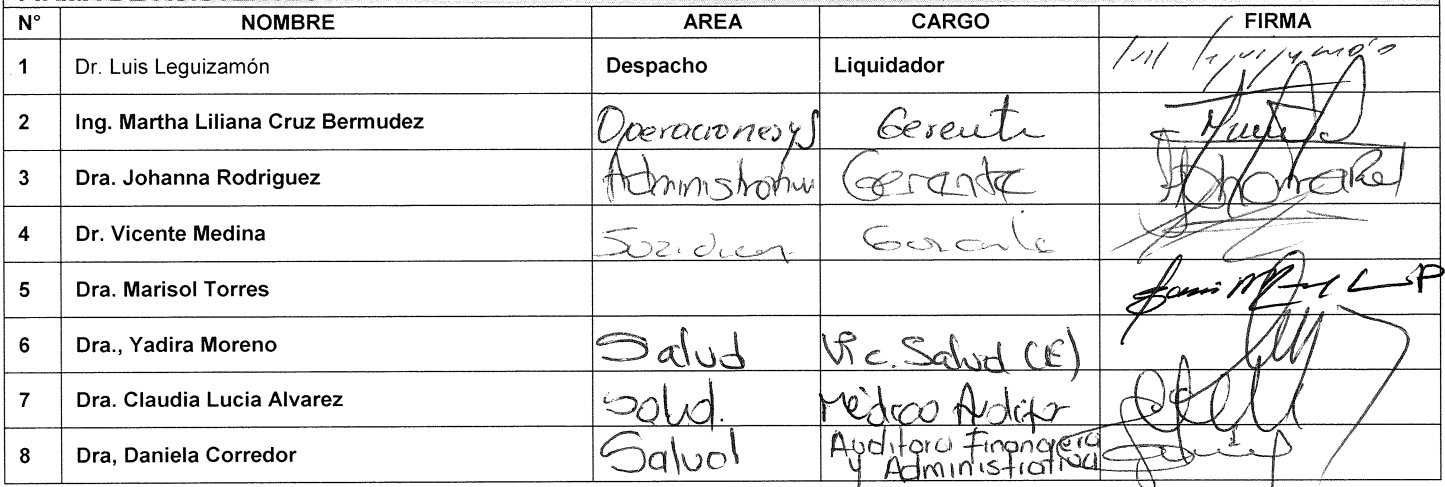 N° NOMBRE AREA CARGO FIRMA
1 Dr. Luis Leguizamón Despacho Liquidador
2 Ing. Martha Liliana Cruz Bermudez Operaciones y S Gerente
3 Dra. Johanna Rodriguez Administrativa Gerente
4 Dr. Vicente Medina Gerente
5 Dra. Marisol Torres
6 Dra., Yadira Moreno Salud Vic. Salud (E)
7 Dra. Claudia Lucia Alvarez Salud. Médico Auditor
8 Dra, Daniela Corredor Salud Auditora Financiera
y Administrativa